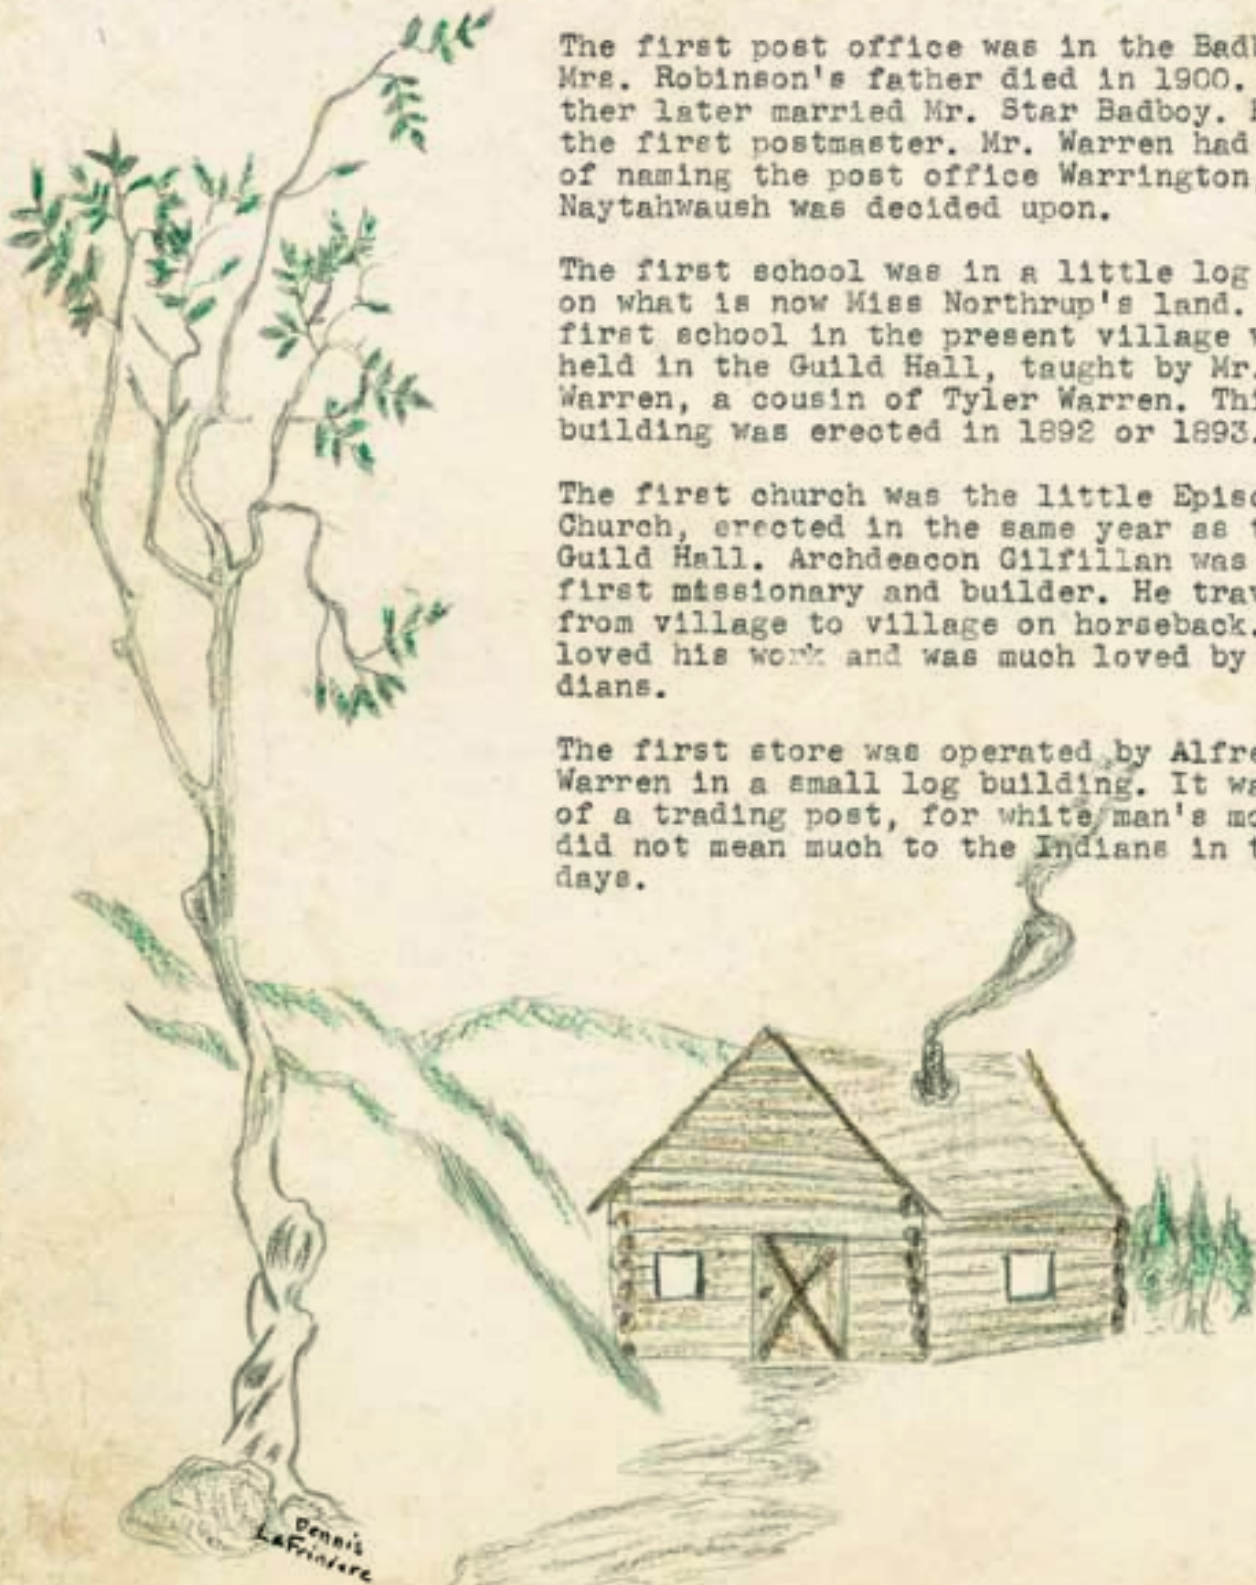 The first post office was in the Bad
Mrs. Robinson's father died in 1900.
ther later married Mr. Star Badboy.
the first postmaster. Mr. Warren had
of naming the post office Warrington
Naytahwaush was decided upon.
The first school was in a little log
on what is now Miss Northrup's land.
first school in the present village
held in the Guild Hall, taught by Mr.
Warren, a cousin of Tyler Warren. Thi
building was erected in 1892 or 1893.
The first church was the little Epis
Church, erected in the same year as
Guild Hall. Archdeacon Gilfillan was
first missionary and builder. He trav
from village to village on horseback.
loved his work and was much loved by
dians.
The first store was operated by Alfre
Warren in a small log building. It wa
of a trading post, for white man's mo
did not mean much to the Indians in t
days.
Dennis